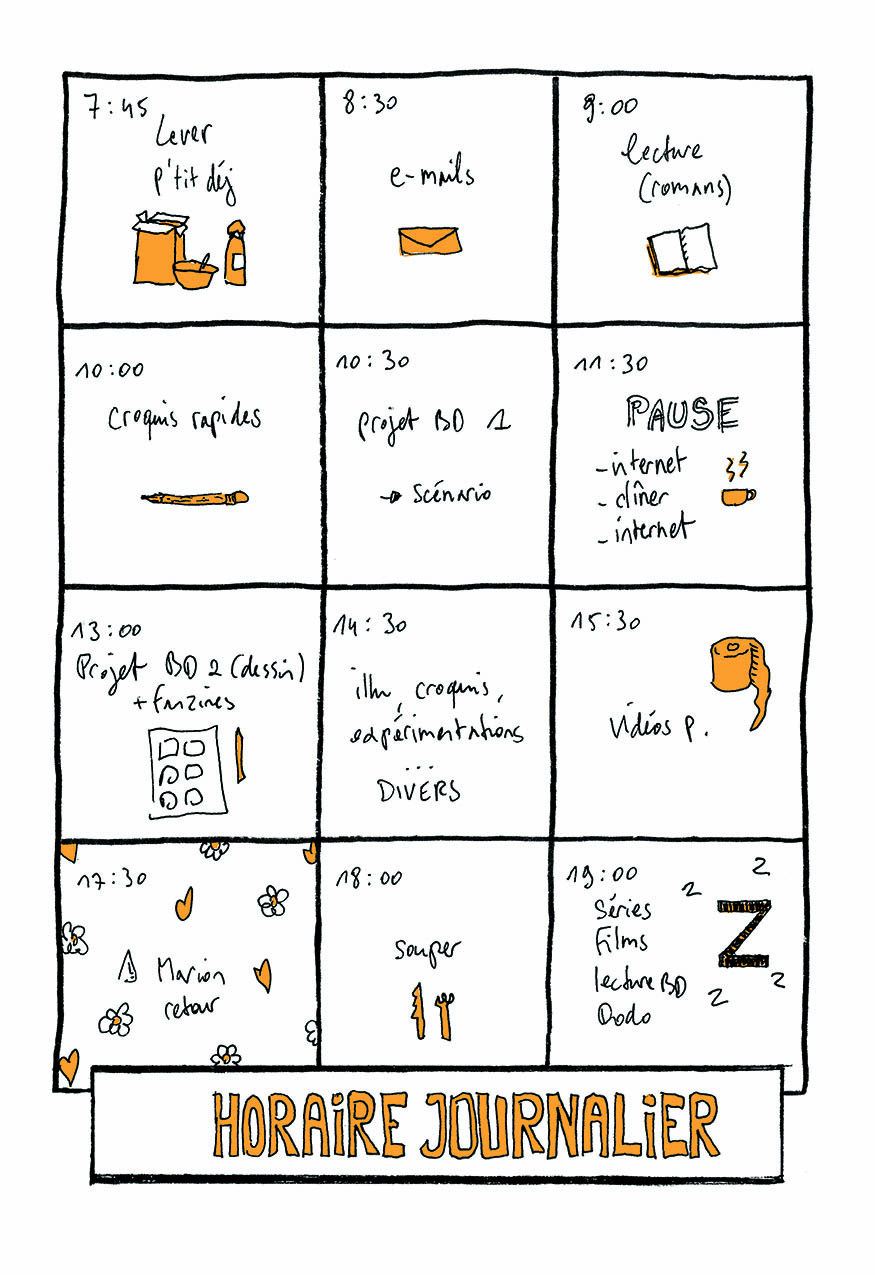 7:45
Lever
p'tit déj
8:30
e-mails
9:00
lecture
(romans)
10:00
croquis rapides
10:30
projet BD 1
→ scénario
11:30
PAUSE
- internet
- dîner
- internet
13:00
Projet BD 2 (dessin)
+ fanzines
14:30
illu, croquis,
expérimentations
...
DIVERS
15:30
vidéos p.
17:30
⚠ Marion
retour
18:00
souper
19:00
Séries
Films
lecture BD
Dodo
z
z
Z
z
z
HORAIRE JOURNALIER